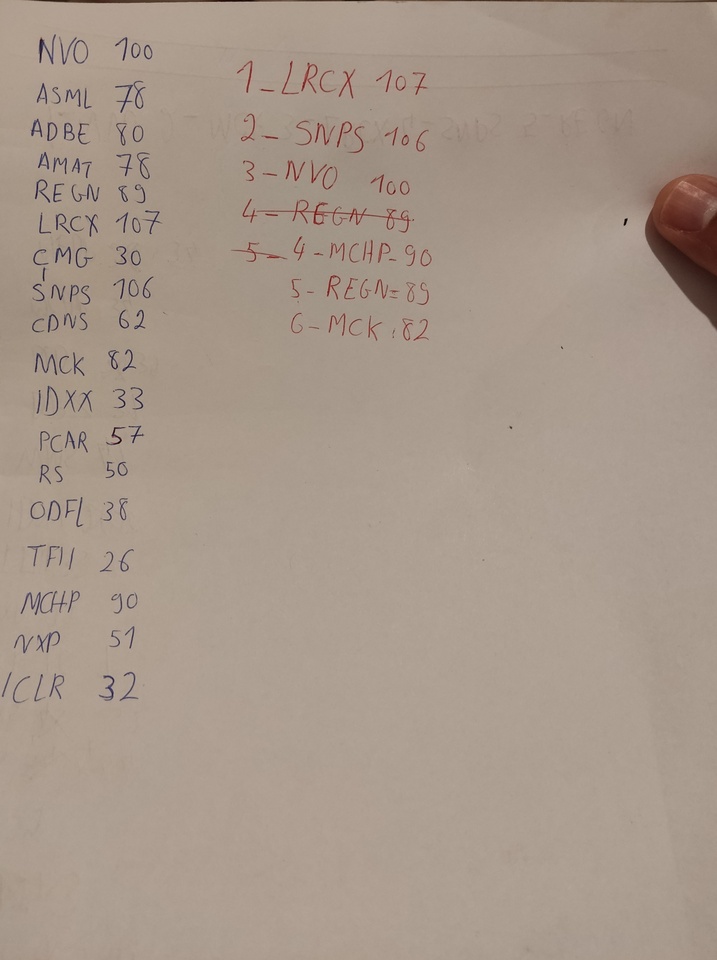 NVO 100
ASML 78
ADBE 80
AMAT 78
REGN 89
LRCX 107
CMG 30
SNPS 106
CDNS 62
MCK 82
IDXX 33
PCAR 57
RS 50
ODFL 38
TFII 26
MCHP 90
NXP 51
ICLR 32
1- LRCX 107
2- SNPS 106
3- NVO 100
4- REGN 89
5- 4- MCHP- 90
5- REGN= 89
6- MCK: 82